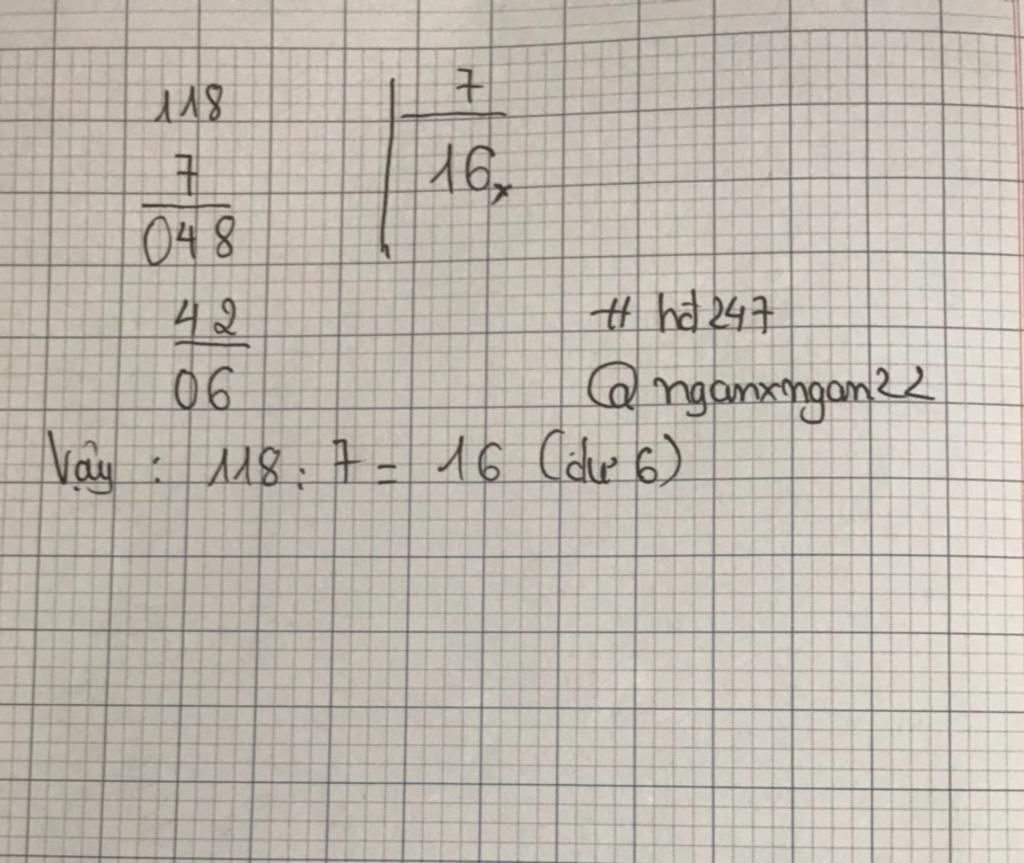 118 7
7 16
048
42
06
# hđ247
@nganxngan22
Vậy : 118 : 7 = 16 (dư 6)